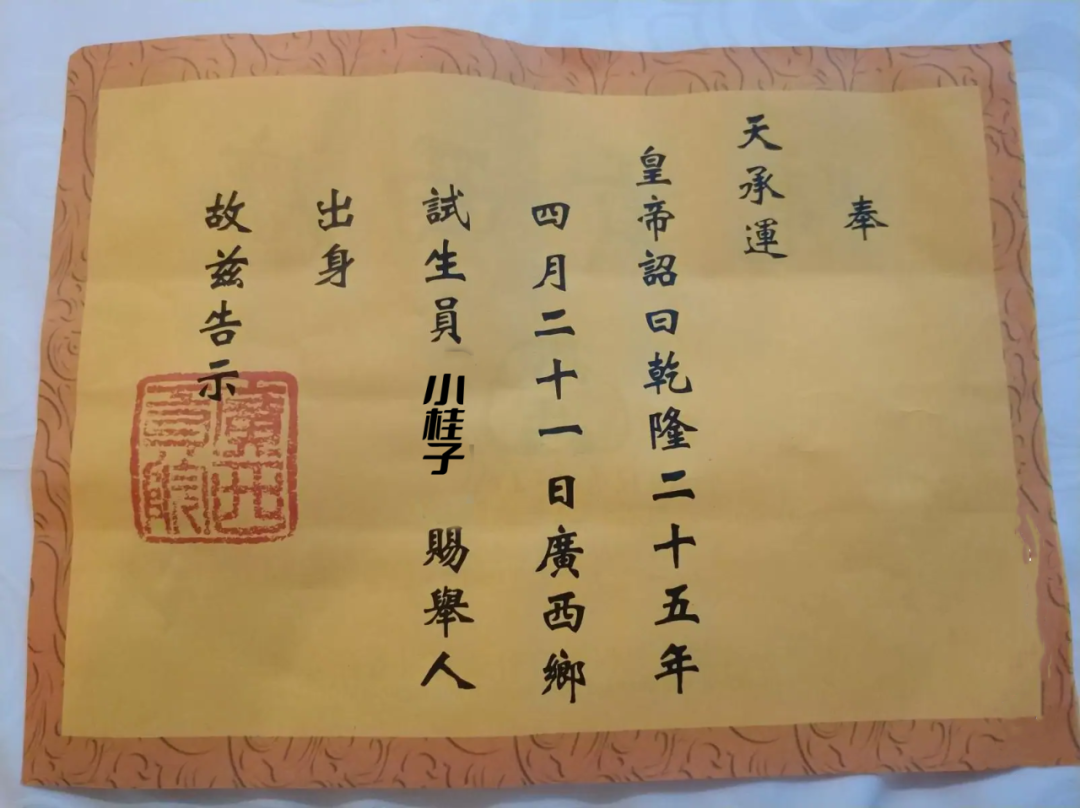 奉
天承運
皇帝詔曰乾隆二十五年
四月二十一日廣西鄉
試生員 小桂子 賜舉人
出身
故兹告示
廣西
貢院